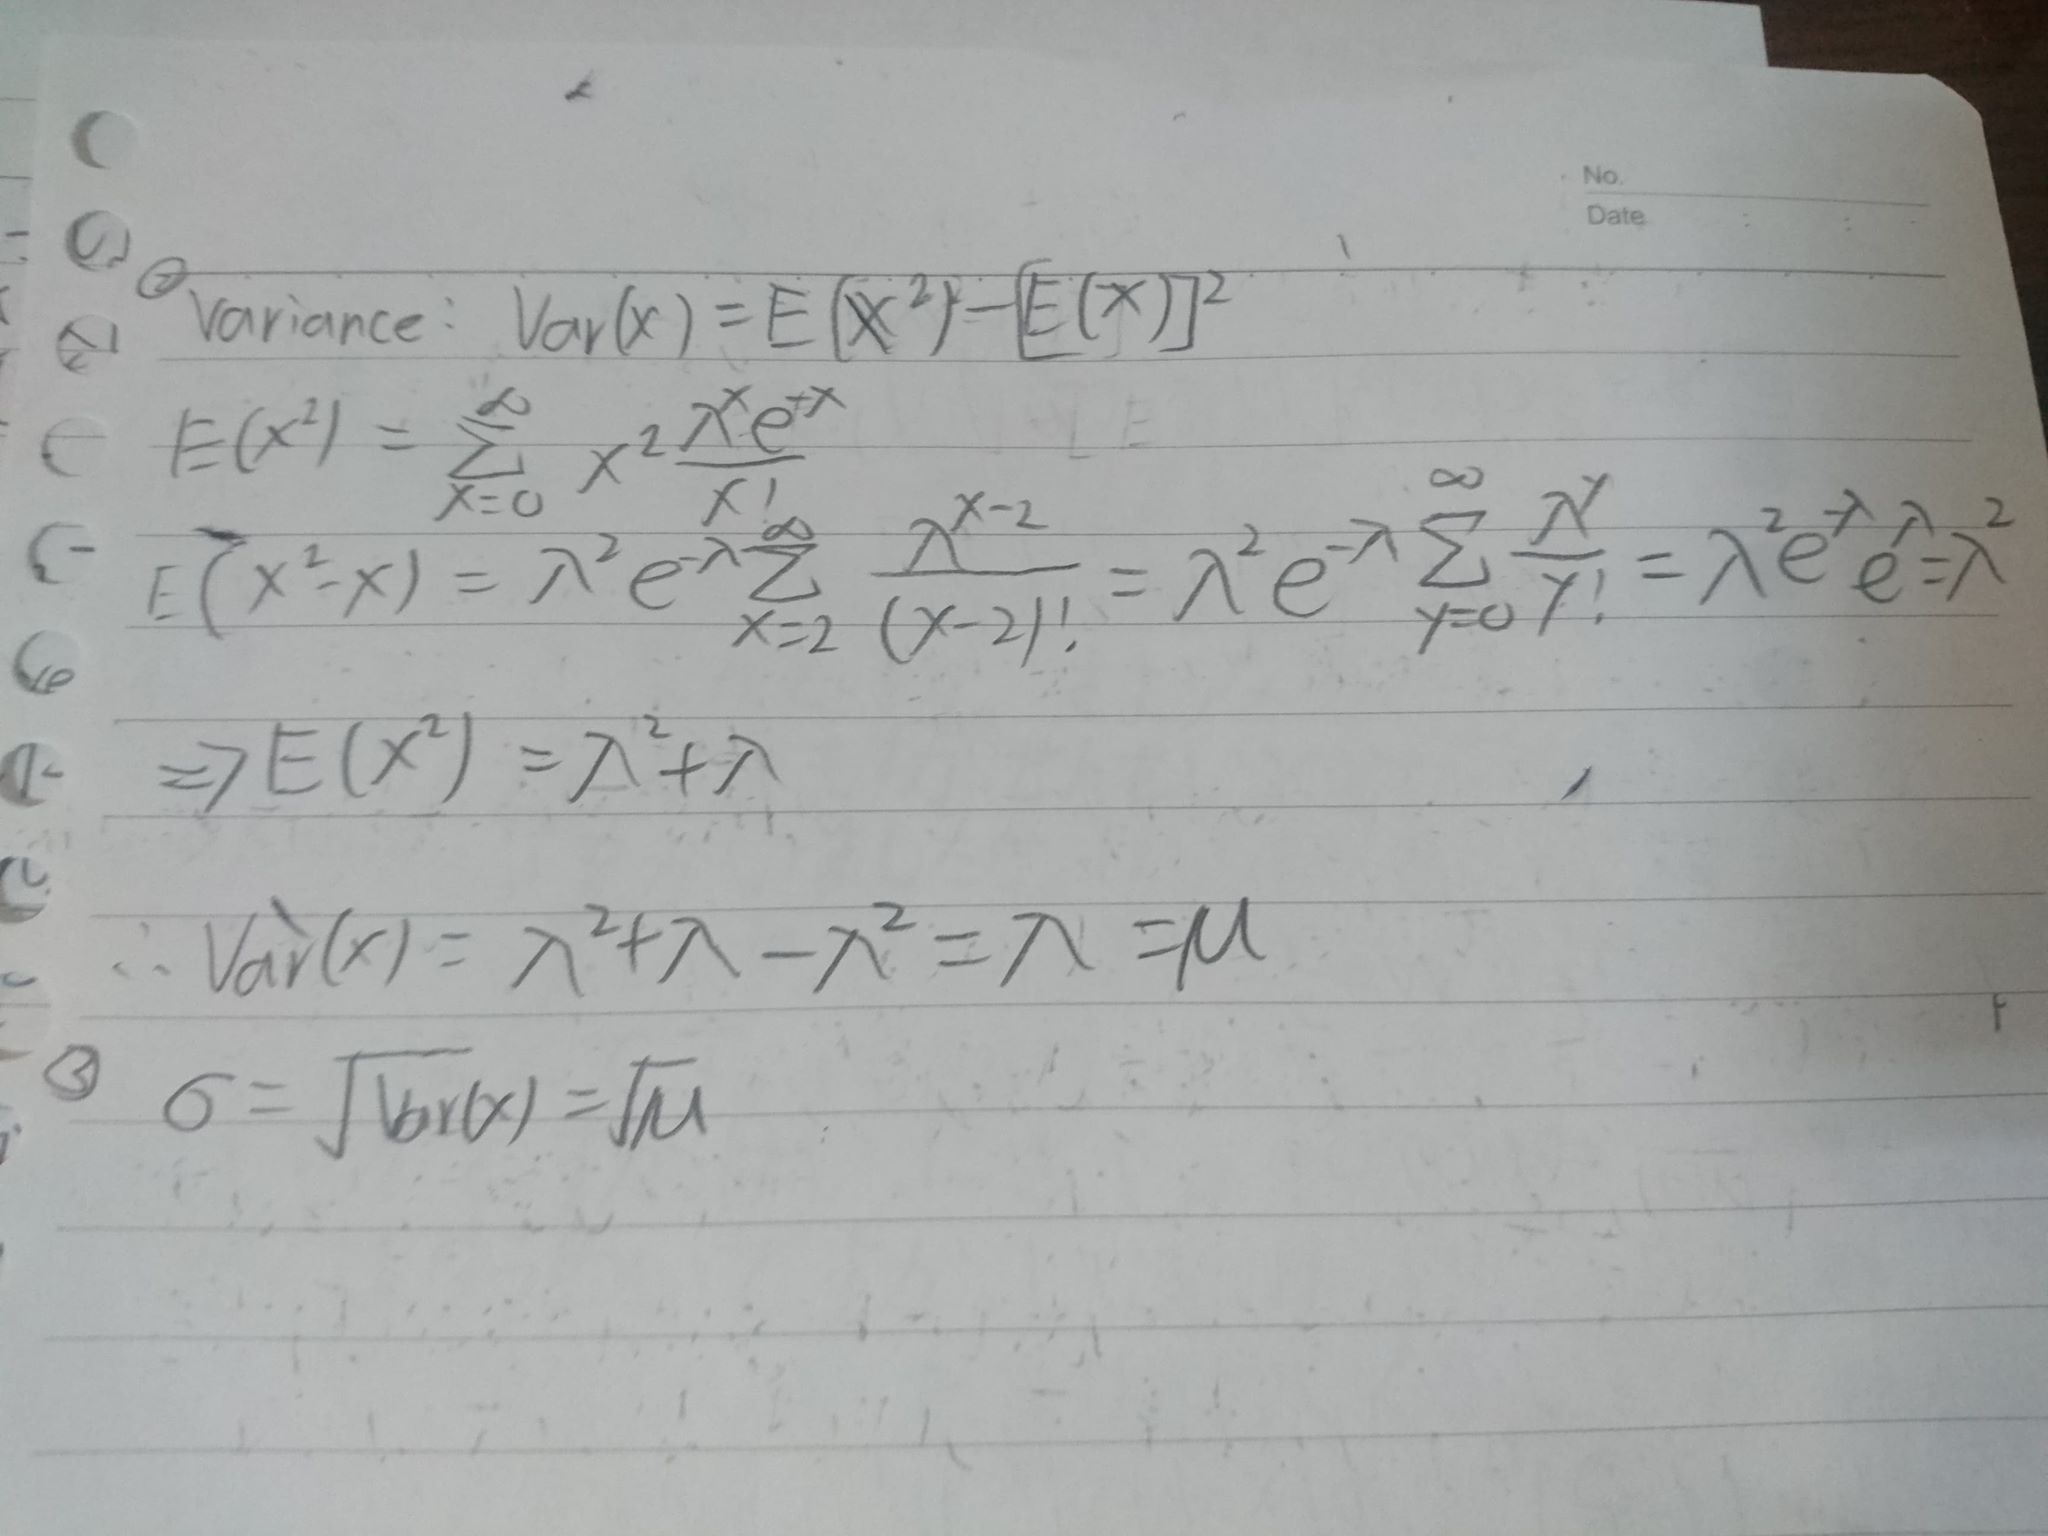 No.
Date
② Variance: Var(x) = E(x²) - [E(x)]²
E(x²) = ∑_{x=0}^{∞} x² \frac{λ^x e^{-λ}}{x!}
E(x²-x) = λ² e^{-λ} ∑_{x=2}^{∞} \frac{λ^{x-2}}{(x-2)!} = λ² e^{-λ} ∑_{y=0}^{∞} \frac{λ^y}{y!} = λ² e^{-λ} e^{λ} = λ²
⇒ E(x²) = λ² + λ
∴ Var(x) = λ² + λ - λ² = λ = μ
③ σ = √Var(x) = √μ